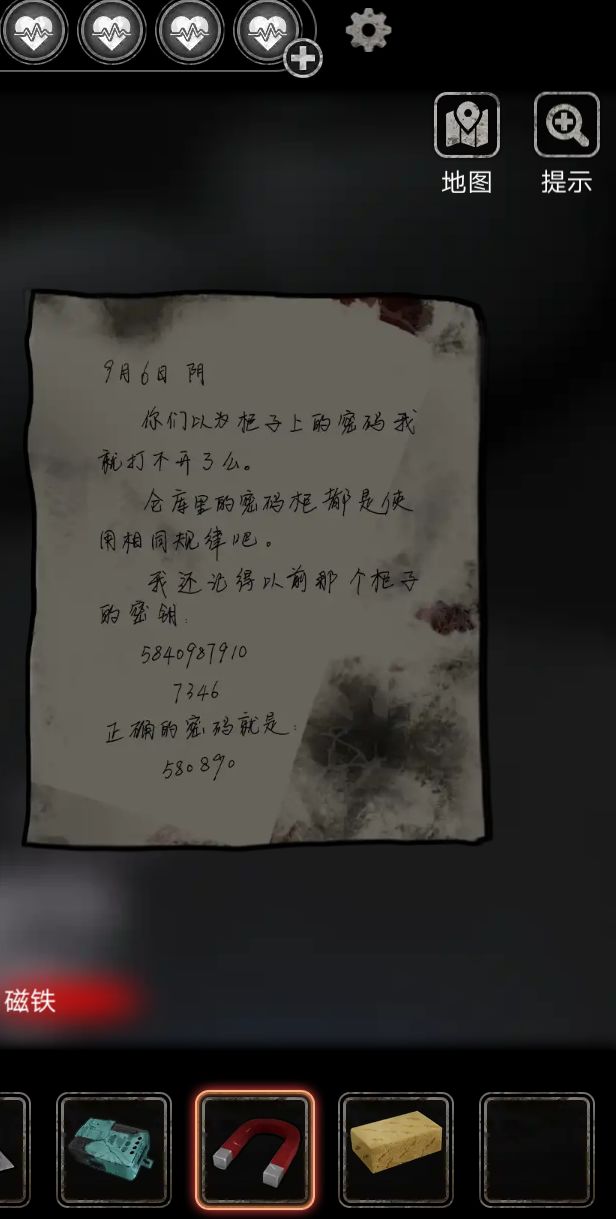 地图 提示
9月6日 阴
你们以为柜子上的密码我
就打不开了么。
仓库里的密码柜都是使
用相同规律吧。
我还记得以前那个柜子
的密钥:
5840987910
7346
正确的密码就是:
580890
磁铁